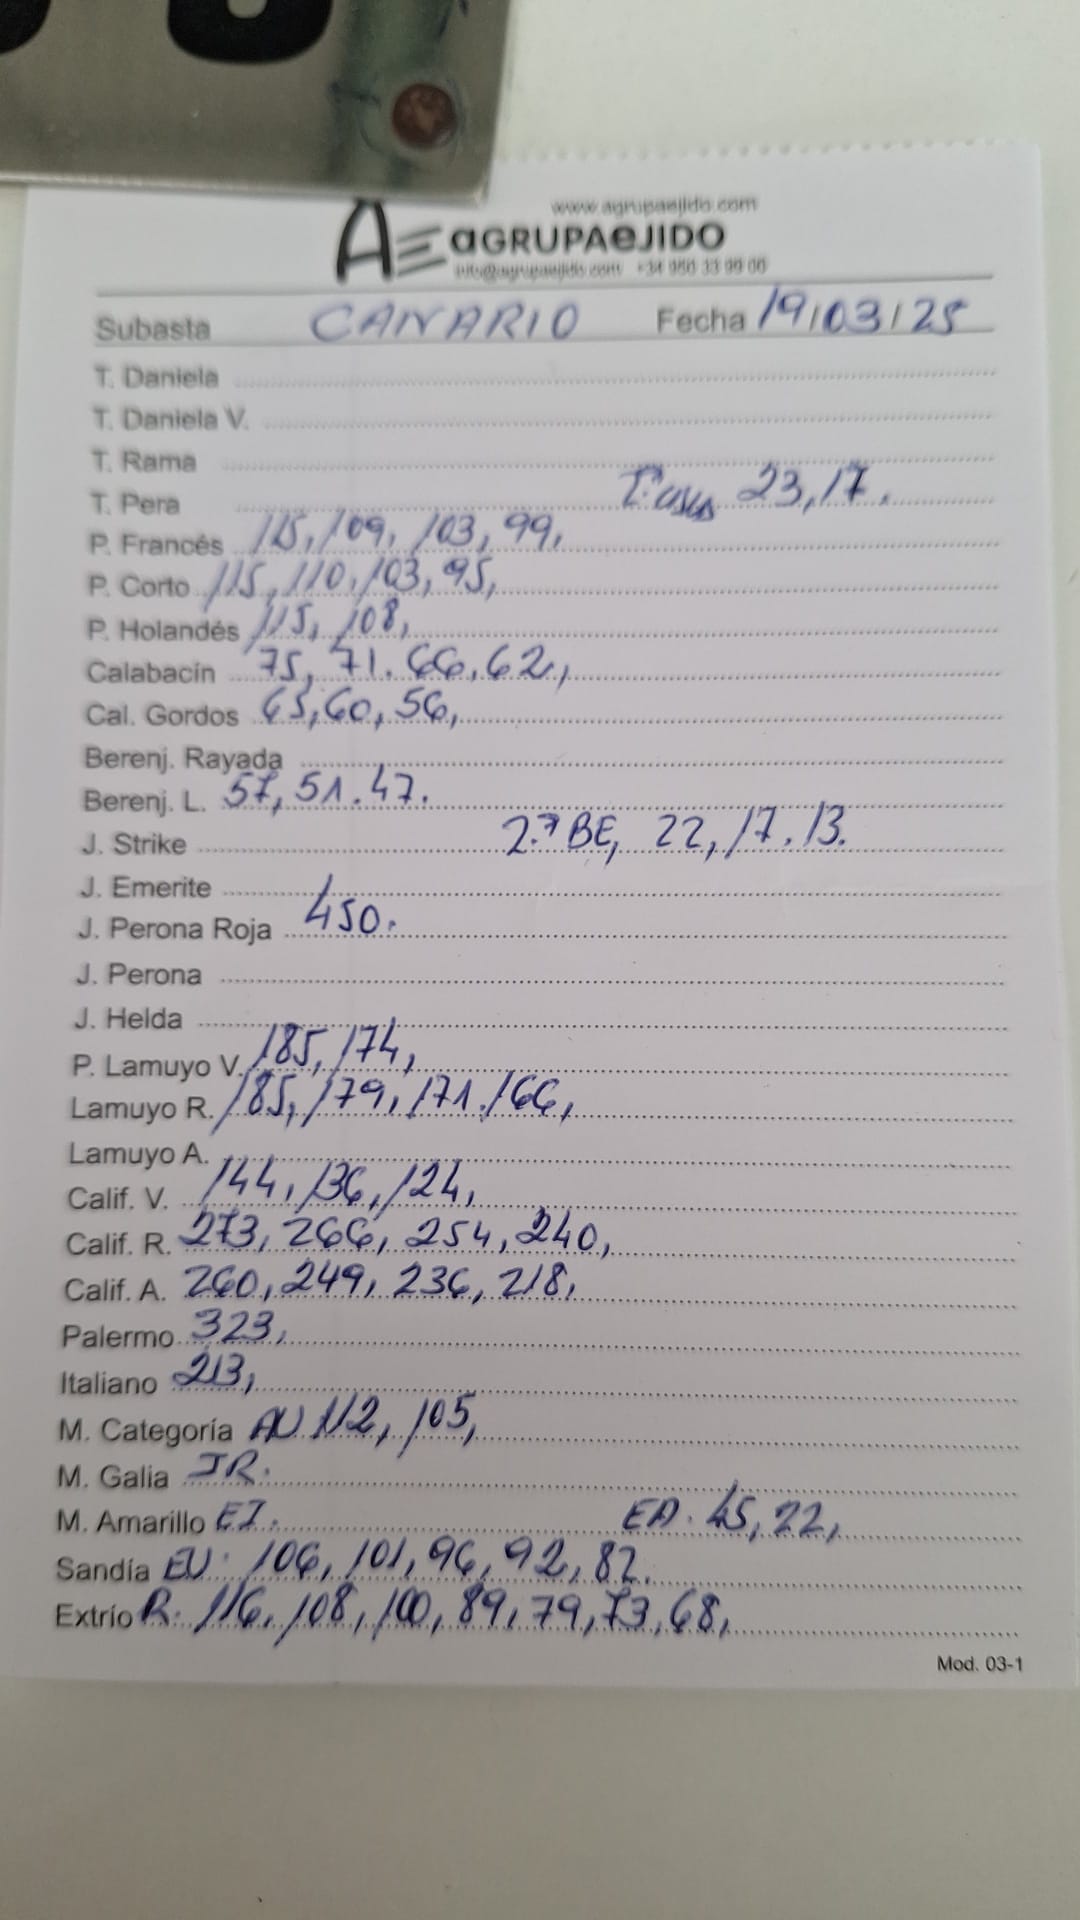 www.agrupaejido.com
AE aGRUPAeJIDO
info@agrupaejido.com +34 950 33 99 00
Subasta CANARIO Fecha 19/03/25
T. Daniela
T. Daniela V.
T. Rama
T. Pera 23, 17.
P. Francés 115, 109, 103, 99,
P. Corto 115, 110, 103, 95,
P. Holandés 115, 108,
Calabacín 75, 71. 66, 62,
Cal. Gordos 65, 60, 56,
Berenj. Rayada
Berenj. L. 57, 51. 47.
J. Strike 2.ª BE, 22, 17. 13.
J. Emerite
J. Perona Roja 450.
J. Perona
J. Helda
P. Lamuyo V. 185, 174,
Lamuyo R. 185, 179, 171. 166,
Lamuyo A.
Calif. V. 144, 136, 124,
Calif. R. 273, 266, 254, 240,
Calif. A. 260, 249, 236, 218,
Palermo 323,
Italiano 213,
M. Categoría AV 112, 105,
M. Galia JR.
M. Amarillo EI. EA. 45, 22,
Sandía EV. 106, 101, 96, 92, 82.
Extrío R. 116, 108, 100, 89, 79, 73, 68,
Mod. 03-1